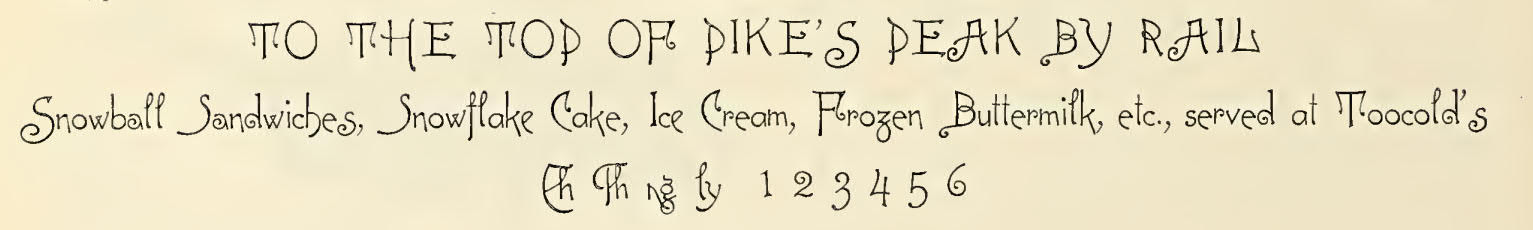 TO THE TOP OF PIKE'S PEAK BY RAIL
Snowball Sandwiches, Snowflake Cake, Ice Cream, Frozen Buttermilk, etc., served at Toocold's
Ch Th ng ly 1 2 3 4 5 6